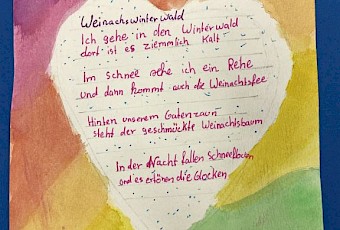 Weinachswinterwald
Ich gehe in den Winterwald
dort ist es ziemmlich kalt
Im Schnee sehe ich ein Rehe
und dann kommt auch die Weinachtsfee
Hinten unserem Gatenzaun
steht der geschmückte Weinachtsbaum
In der Nacht fallen Schneeflocken
und es ertönen die Glocken